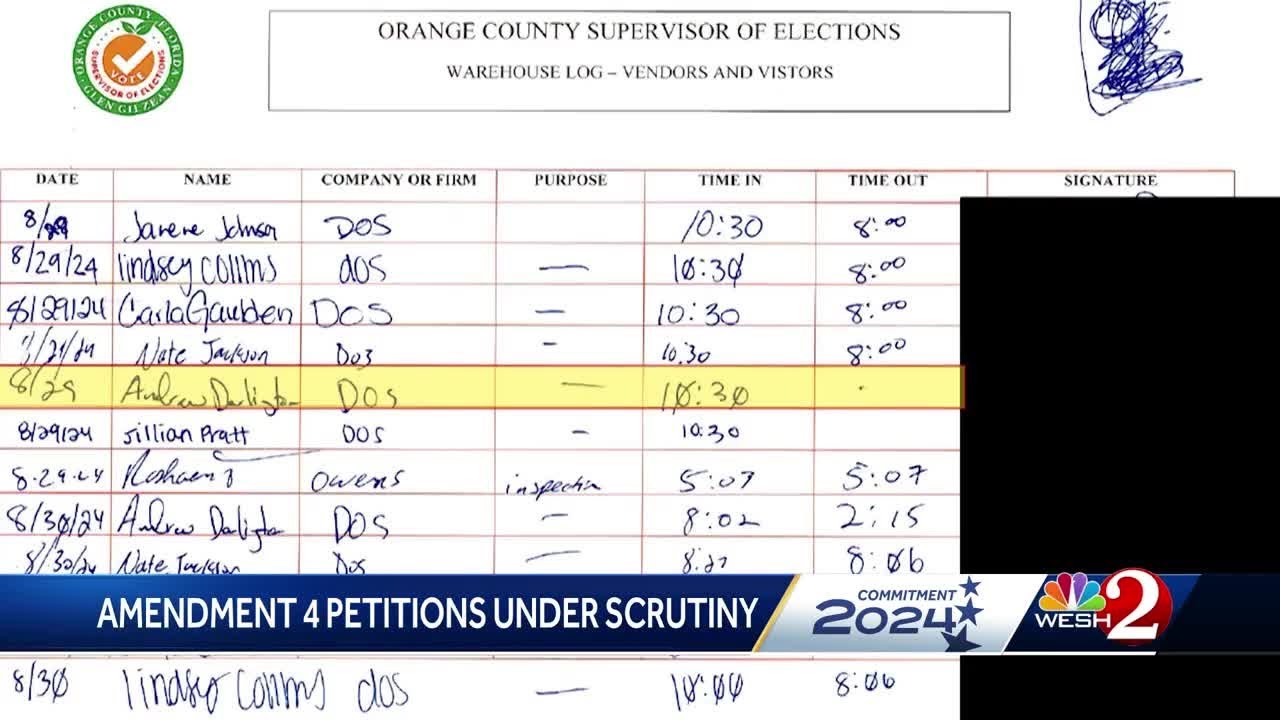 ORANGE COUNTY, FLORIDA
VOTE
SUPERVISOR OF ELECTIONS
GLEN GILZEAN
ORANGE COUNTY SUPERVISOR OF ELECTIONS
WAREHOUSE LOG – VENDORS AND VISTORS
DATE NAME COMPANY OR FIRM PURPOSE TIME IN TIME OUT SIGNATURE
8/29 Janene Johnson DOS 10:30 8:00
8/29/24 lindsey collins dos — 10:30 8:00
8/29/24 Carla Gaulden DOS — 10:30 8:00
8/29/24 Nate Jackson DOS - 10:30 8:00
8/29 Andrew Darlington DOS — 10:30
8/29/24 Jillian Pratt DOS - 10:30
8.29.24 Owens inspection 5:07 5:07
8/30/24 Andrew Darlington DOS — 8:02 2:15
8/30/24 Nate Jackson Dos — 8:27 8:06
AMENDMENT 4 PETITIONS UNDER SCRUTINY
COMMITMENT
2024
WESH 2
8/30 lindsey collins dos — 10:00 8:06